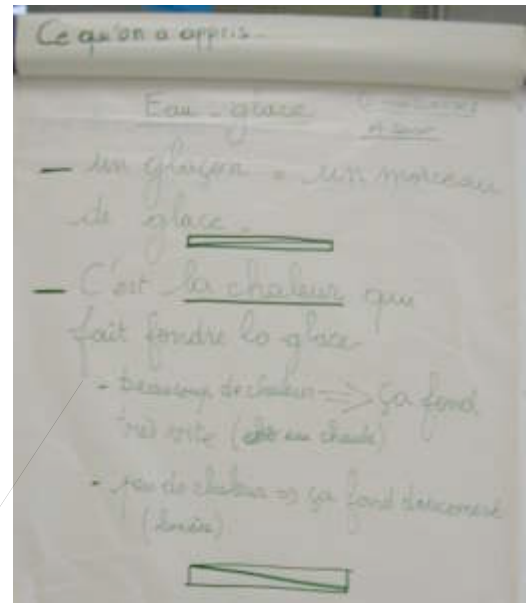 Ce qu'on a appris
Eau - glace
— un glaçon = un morceau
de glace.
— C'est la chaleur qui
fait fondre la glace
• beaucoup de chaleur => ça fond
très vite (
• peu de chaleur => ça fond doucement